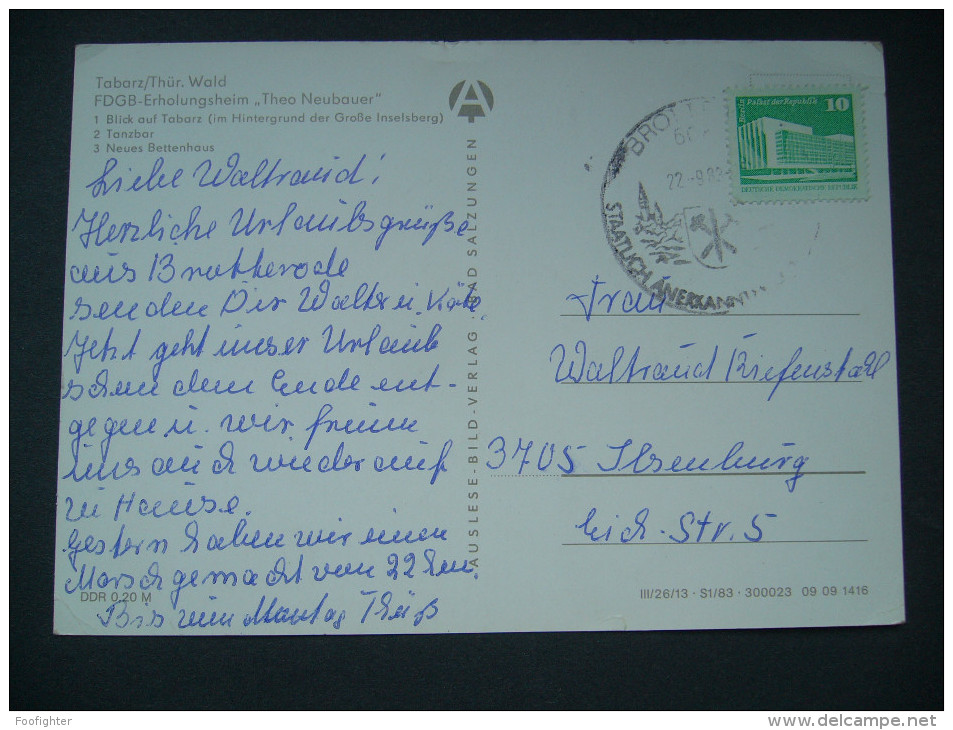 Tabarz/Thür. Wald
FDGB-Erholungsheim „Theo Neubauer"
1 Blick auf Tabarz (im Hintergrund der Große Inselsberg)
2 Tanzbar
3 Neues Bettenhaus
Liebe Waltraud!
Herzliche Urlaubsgrüße
aus Brotterode
senden Dir Walter u. Käte.
Jetzt geht unser Urlaub
schon dem Ende ent-
gegen u. wir freuen
uns auch wieder auf
zu Hause.
Gestern haben wir einen
Marsch gemacht von 22 km.
Bis zum Montag Tschüß
DDR 0,20 M
AUSLESE-BILD-VERLAG · BAD SALZUNGEN
BROTTE
22.-9.83
STAATLICH ANERKANNT
Berlin Palast der Republik
10
DEUTSCHE DEMOKRATISCHE REPUBLIK
Frau
Waltraud Riefenstahl
3705 Ilsenburg
Str. 5
III/26/13 · S1/83 · 300023 09 09 1416
Foofighter
www.delcampe.net